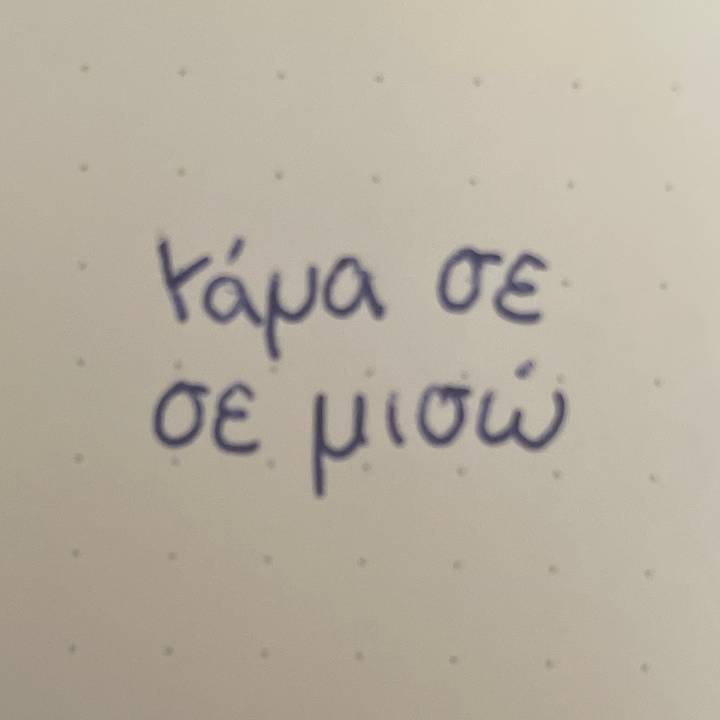 τάμα σε
σε μισώ